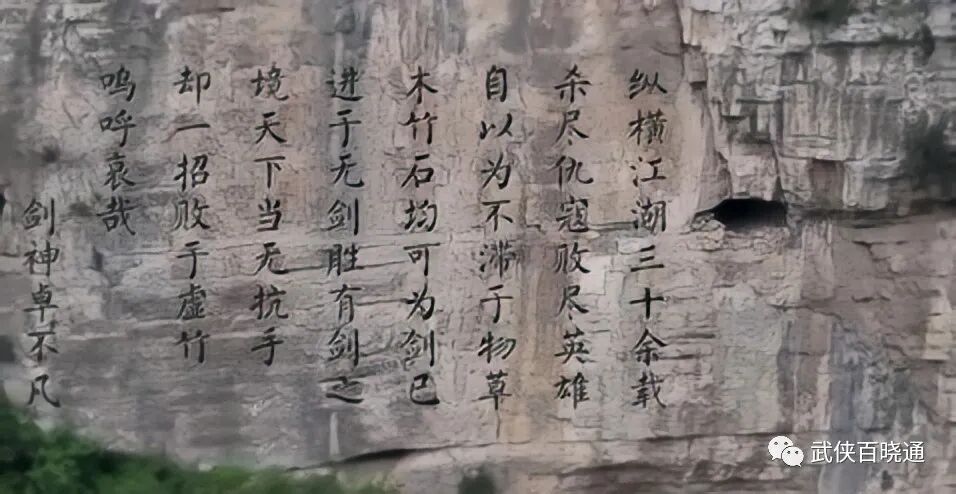 纵横江湖三十余载
杀尽仇寇败尽英雄
自以为不滞于物草
木竹石均可为剑已
进于无剑胜有剑之
境天下当无抗手
却一招败于虚竹
呜呼哀哉
剑神卓不凡
武侠百晓通